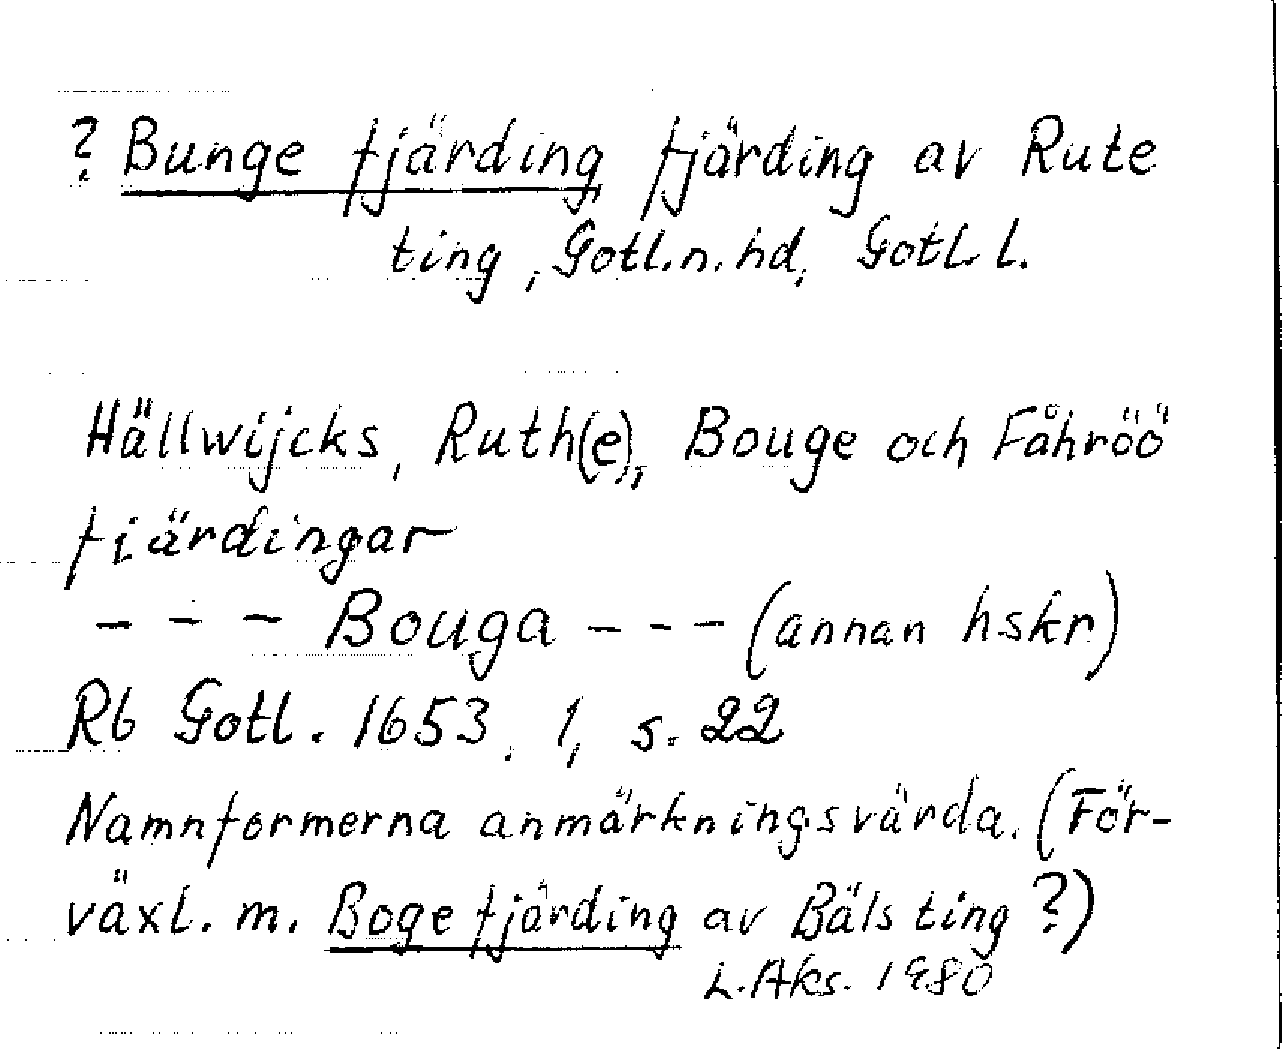 ? Bunge fjärding, fjärding av Rute
ting, Gotl.n.hd, Gotl. l.
Hällwijcks, Ruth(e),, Bouge och Fåhröö
fiärdingar
- - - Bouga - - - (annan hskr)
Rb Gotl. 1653. 1, s. 22
Namnformerna anmärkningsvärda. (För-
växl. m. Boge fjärding av Bäls ting ?)
L.Aks. 1980